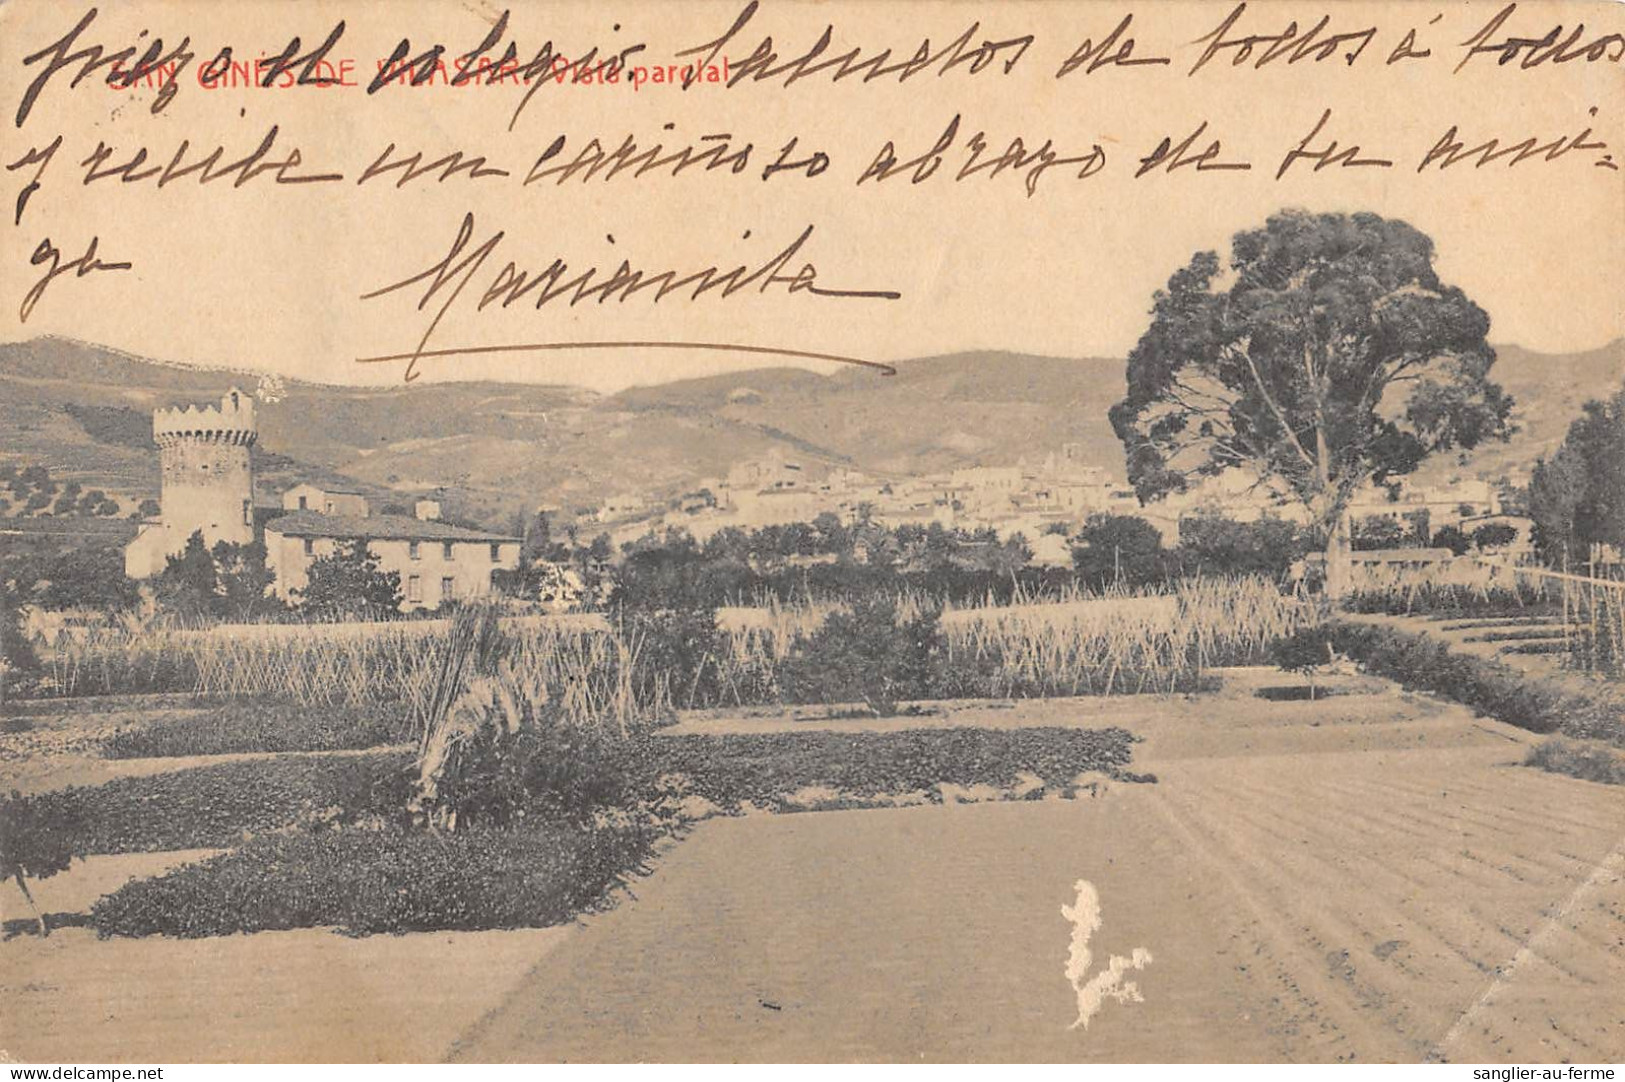 piezo el colegio. Saludos de todos á todos
SAN GINÉS DE VILASAR. Vista parcial
y recibe un cariñoso abrazo de tu ami-
ga
Marianita
www.delcampe.net
sanglier-au-ferme